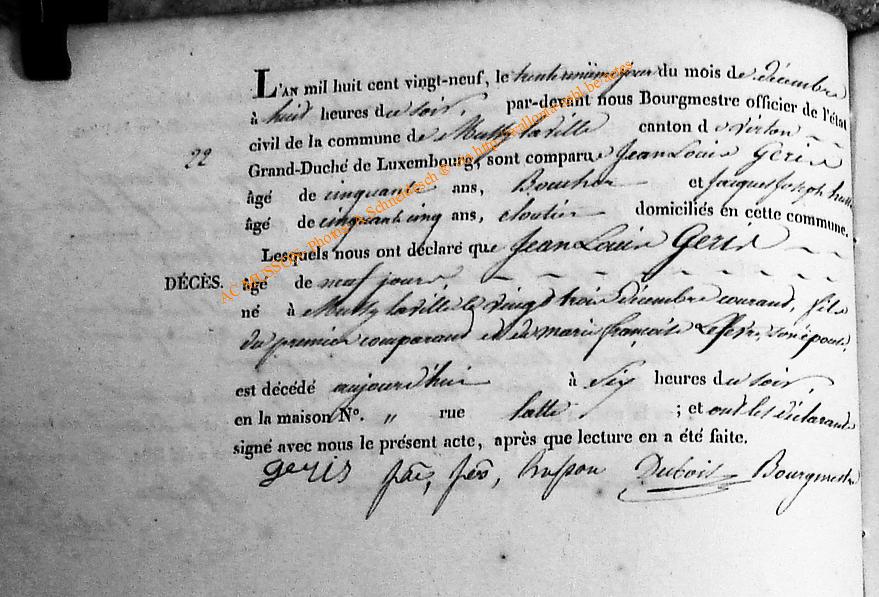 L'AN mil huit cent vingt-neuf, le trente unième jour du mois de décembre
à huit heures du soir, par-devant nous Bourgmestre officier de l'état
civil de la commune de Mussy la ville canton de Virton
22
Grand-Duché de Luxembourg, sont comparus Jean Louis Geris
âgé de cinquante ans, et Jacques Joseph
âgé de cinquante cinq ans, cloutier domiciliés en cette commune.
Lesquels nous ont déclaré que Jean Louis Geris
DÉCÈS. âgé de neuf jours
né à Mussy la ville le vingt trois décembre courant, fils
du premier comparant et de marie françoise Lefevre, son épouse,
est décédé aujourd'hui à six heures du soir,
en la maison N°. „ rue ; et ont les déclarants
signé avec nous le présent acte, après que lecture en a été faite.
geris Dubois Bourgmestre
AC MUSSON, Photos A Schneidesch © via http://wallonia.ghl.be/actes